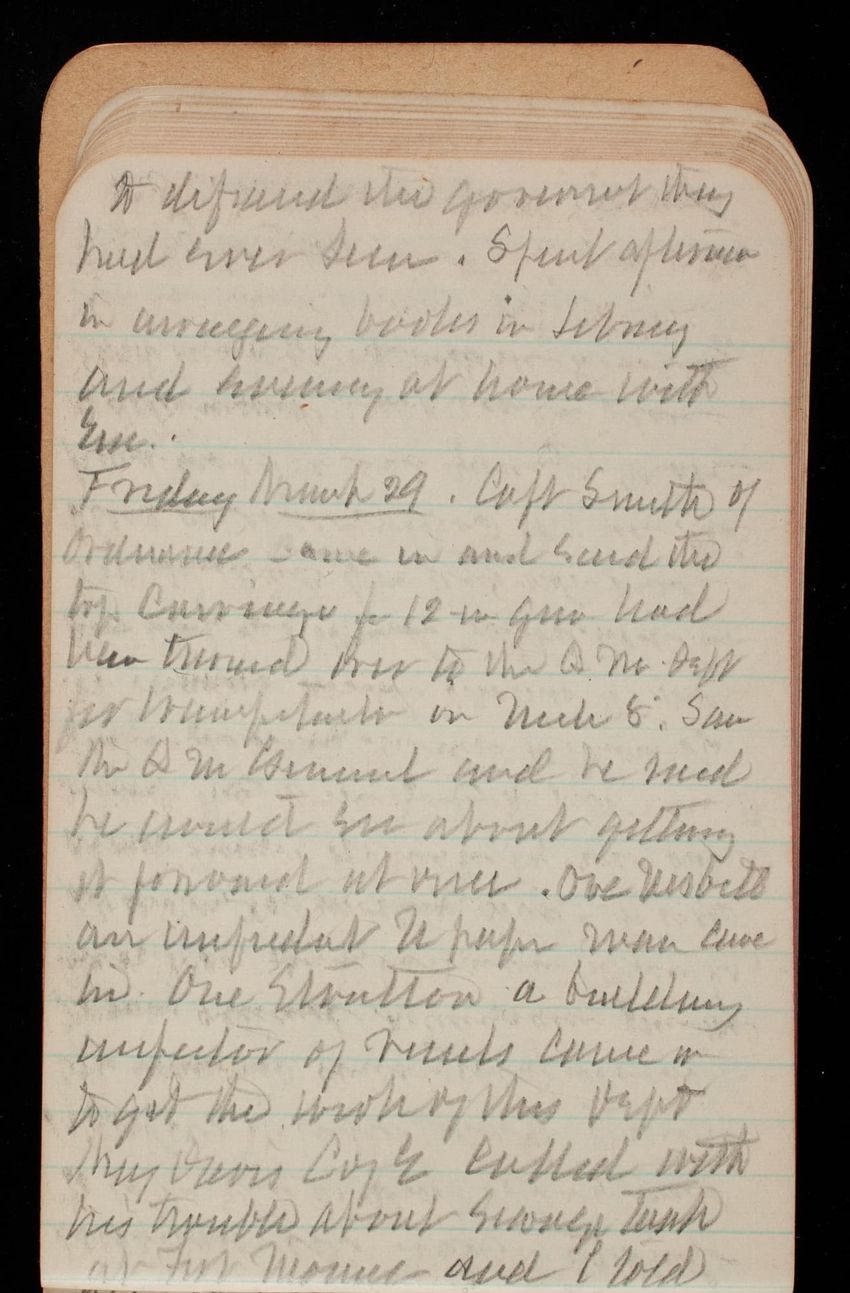 to defraud the goverment they
had ever seen. Spent afternoon
in arranging books in library
and evening at home with
Em.
Friday March 29. Capt Smith of
Ordnance came in and said the
top Carriage for 12-in gun had
been turned over to the Q M. Dept
for transportation on Mch 8. Saw
the Q M General and he said
he would see about getting
it forward at once. One Nesbitt
an N paper man came
in. One Stratton a building
inspector of vessels came in
to get the work of this Dept
Maj Davis C of E called with
his trouble about Sewage Tank
at Fort Monroe and I told